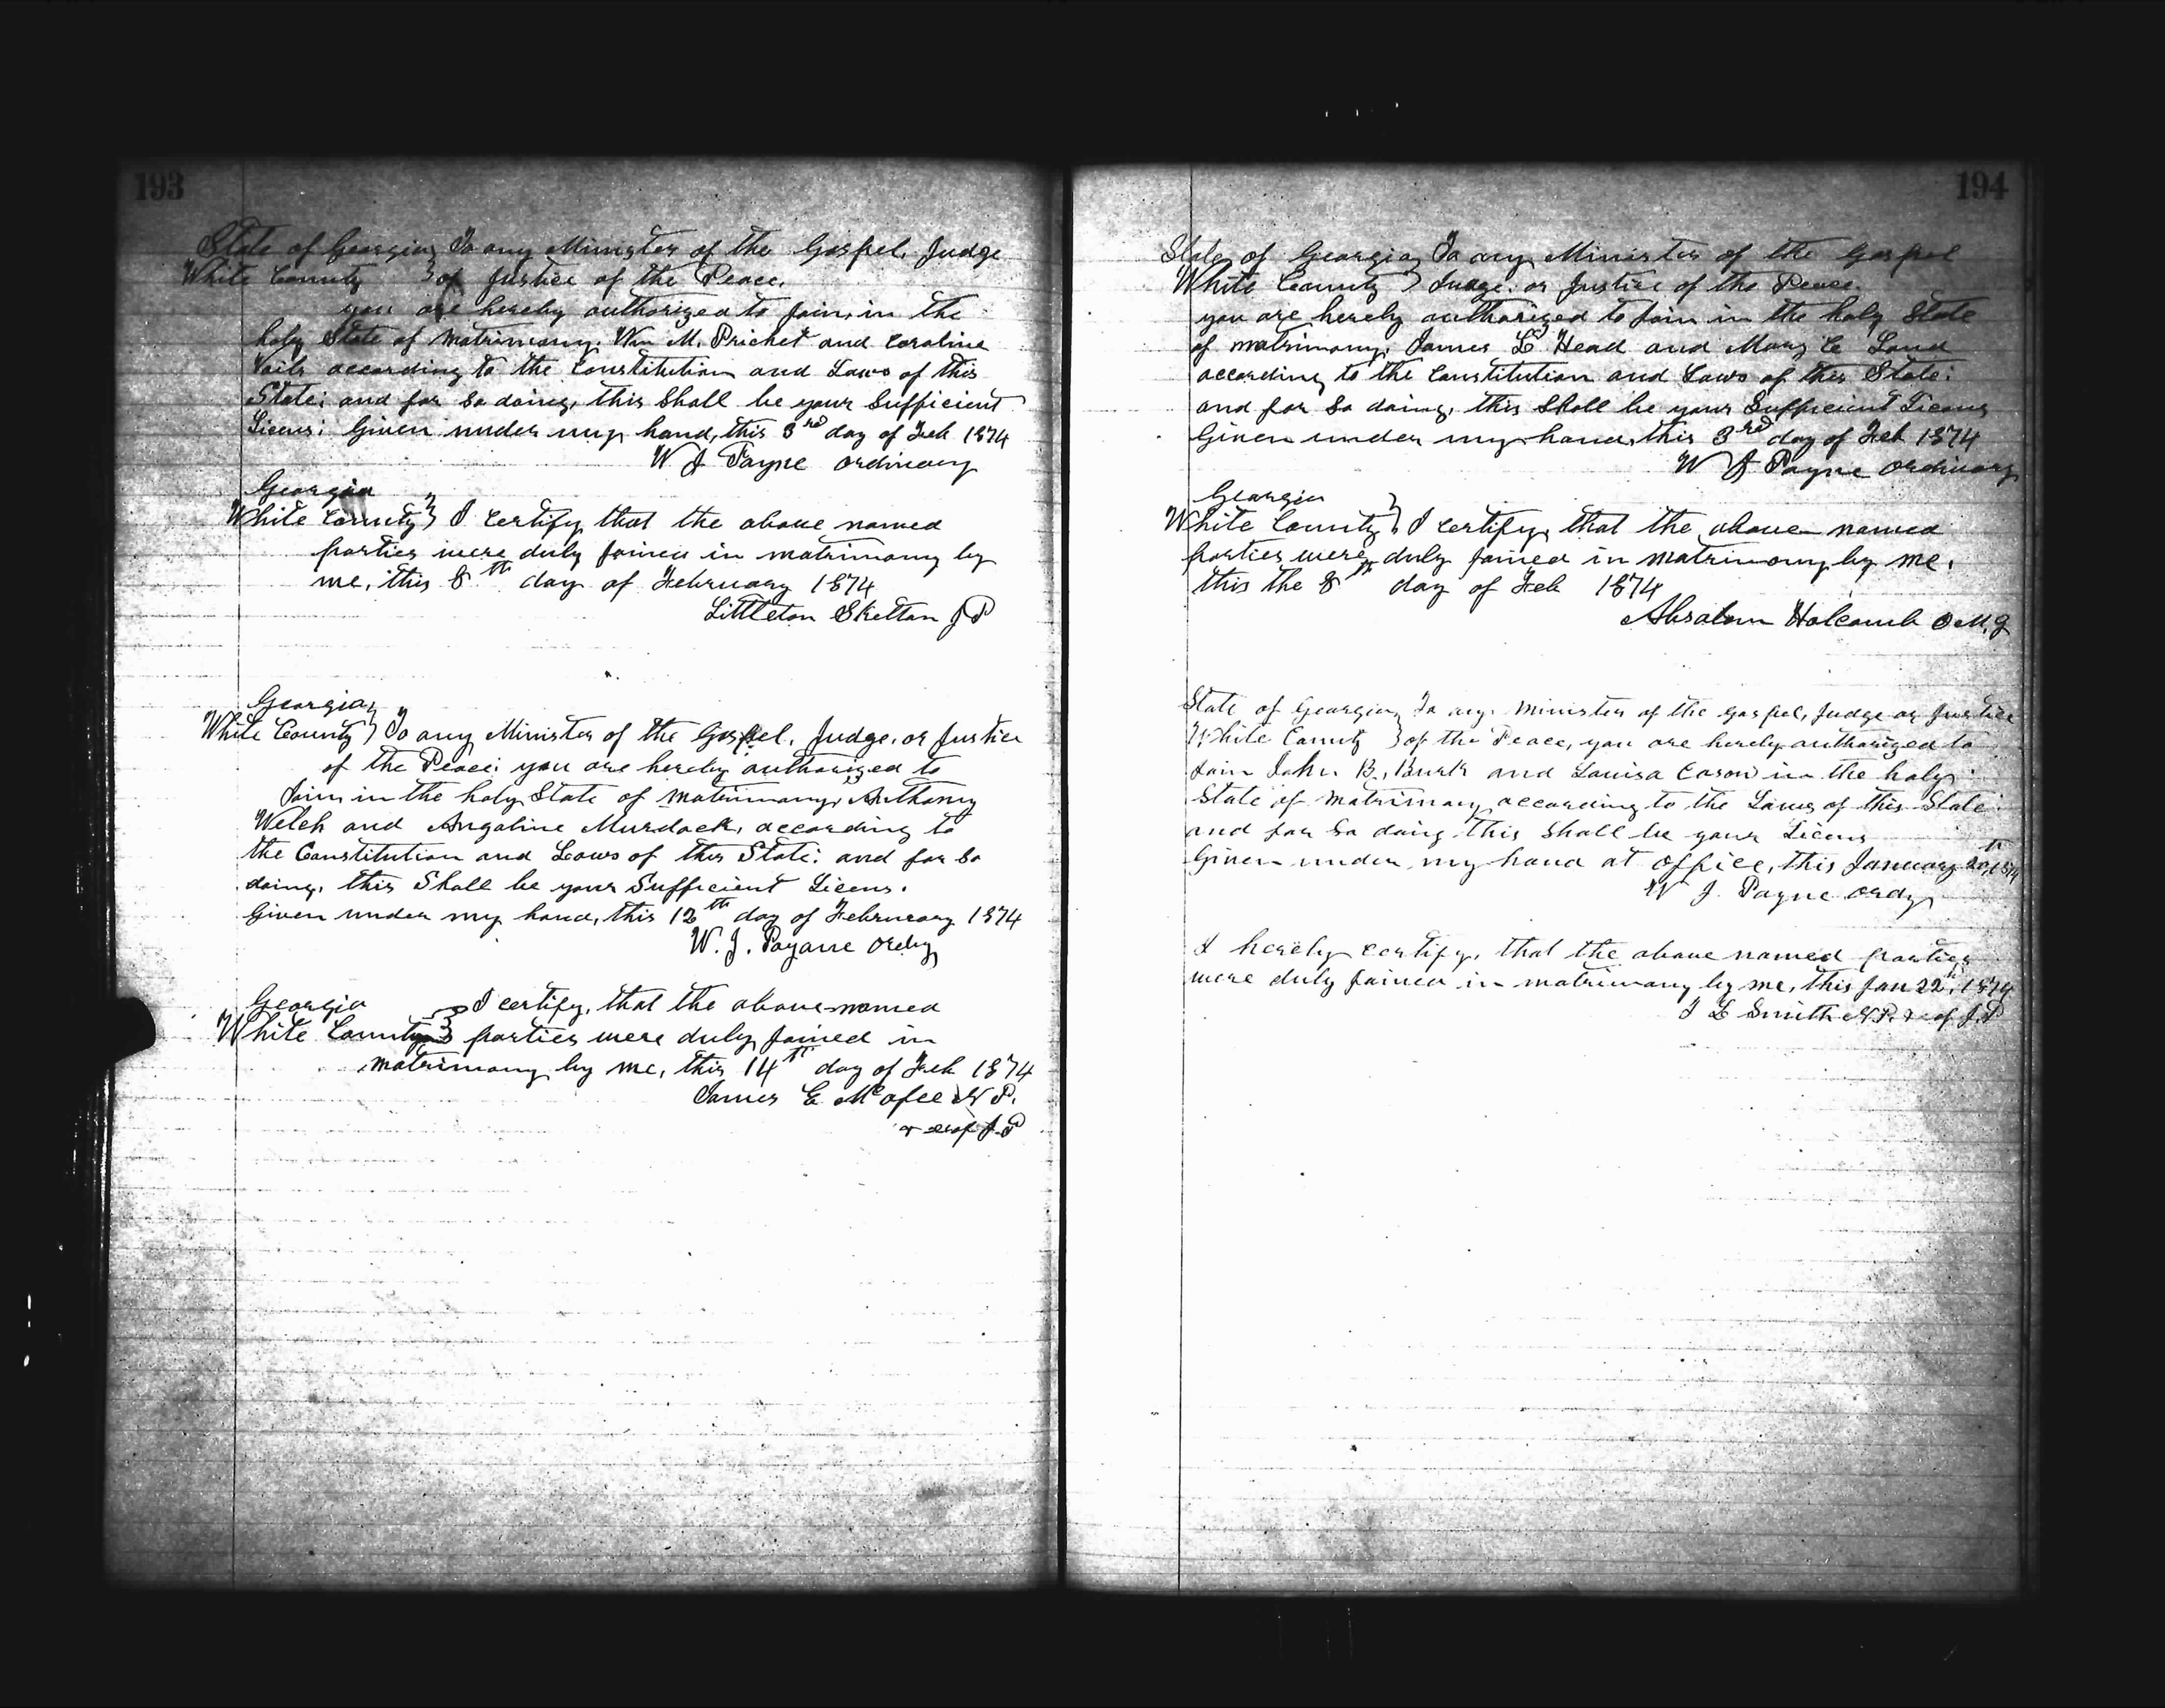 193
State of Georgia } To any Minister of the Gospel, Judge
White County } of Justice of the Peace.
you are hereby authorized to Join, in the
holy State of Matrimony. Wm M. Prichet and Caroline
Vails according to the Constitution and Laws of this
State; and for so doing, this Shall be your Sufficient
Licens; Given under my hand, this 3rd day of Feb 1874
W J Payne ordinary
Georgia
White County } I certify that the above named
parties were duly Joined in matrimony by
me, this 8th day of February 1874
Littleton Skelton J P
Georgia
White County } To any Minister of the Gospel, Judge, or Justice
of the Peace; you are hereby authorized to
Join in the holy State of Matrimony, Anthony
Welch and Angaline Murdock, according to
the Constitution and Laws of this State; and for So
doing, this Shall be your Sufficient Licens.
Given under my hand, this 12th day of February 1874
W. J. Payane Ordy
Georgia I certify, that the above named
White County } parties were duly Joined in
matrimony by me, this 14th day of Feb 1874
James E McAfee N P.
& exof J.P
194
State of Georgia } To any Minister of the Gospel
White County } Judge, or Justice of the Peace.
you are hereby authorized to Join in the holy State
of matrimony, James L Head and Mary C Land
according to the Constitution and Laws of this State;
and for So doing, this Shall be your Sufficient Licens
Given under my hand, this 3rd day of Feb 1874
W J Payne Ordinary
Georgia
White County } I certify, that the above named
parties were duly Joined in matrimony by me,
this the 8th day of Feb 1874
Absalom Holcomb O M, G
State of Georgia } To any Minister of the Gospel, Judge or Justice
White County } of the Peace, you are hereby authorized to
Join John B. Burk and Louisa Eason in the holy
State of Matrimony according to the Laws of this State;
and for So doing this Shall be your Licens
Given under my hand at office, this January 20th, 1874
W J. Payne Ordy
I hereby certify, that the above named parties
were duly Joined in matrimony by me, this Jan 22th, 1874
L Smith N.P. & exof J.P